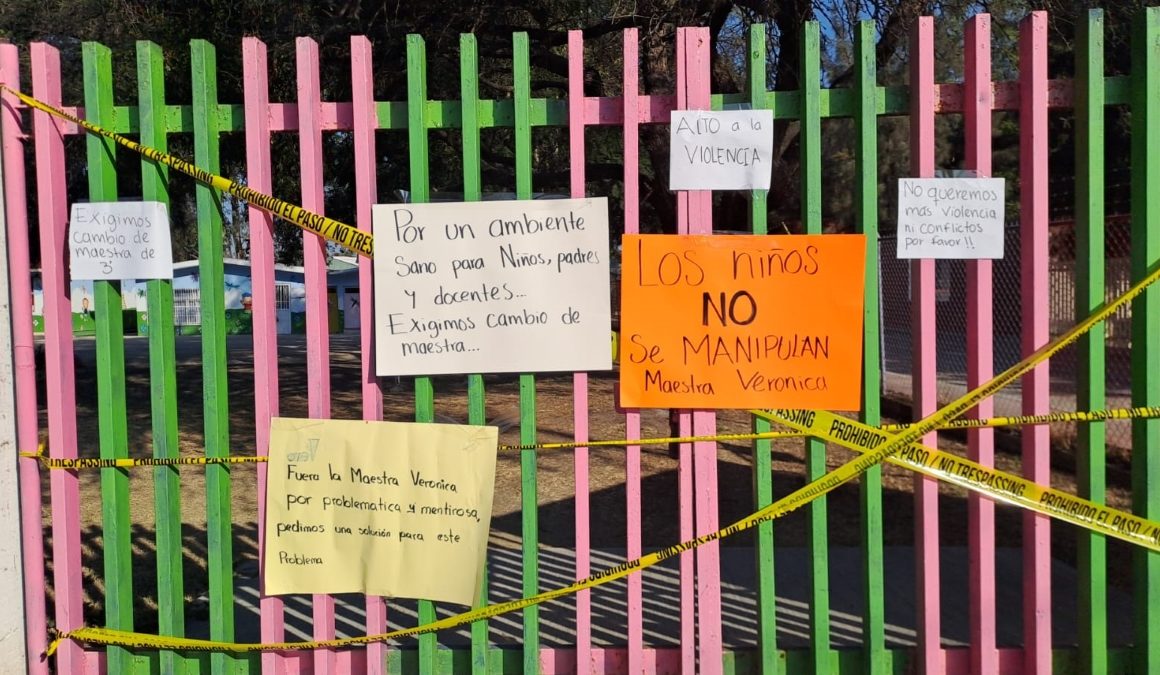 ALTO a la
VIOLENCIA
Exigimos
cambio de
maestra de
3°
Por un ambiente
Sano para Niños, padres
y docentes...
Exigimos cambio de
maestra...
Los niños
NO
Se MANIPULAN
Maestra Veronica
No queremos
mas violencia
ni conflictos
por favor!!
Fuera la Maestra Veronica
por problematica y mentirosa,
pedimos una solución para este
Problema
PROHIBIDO EL PASO / NO TRESPASSING
TRESPASSING PROHIBIDO EL PASO / NO TRESPASSING PROHIBIDO EL PASO